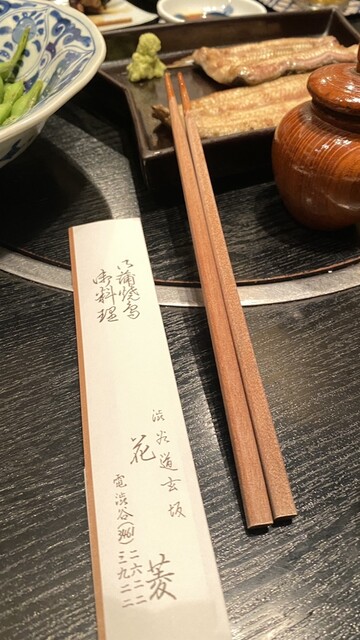 御蒲焼鳥
御料理
渋谷道玄坂
花菱
電渋谷(461)
二六二二
三九二二